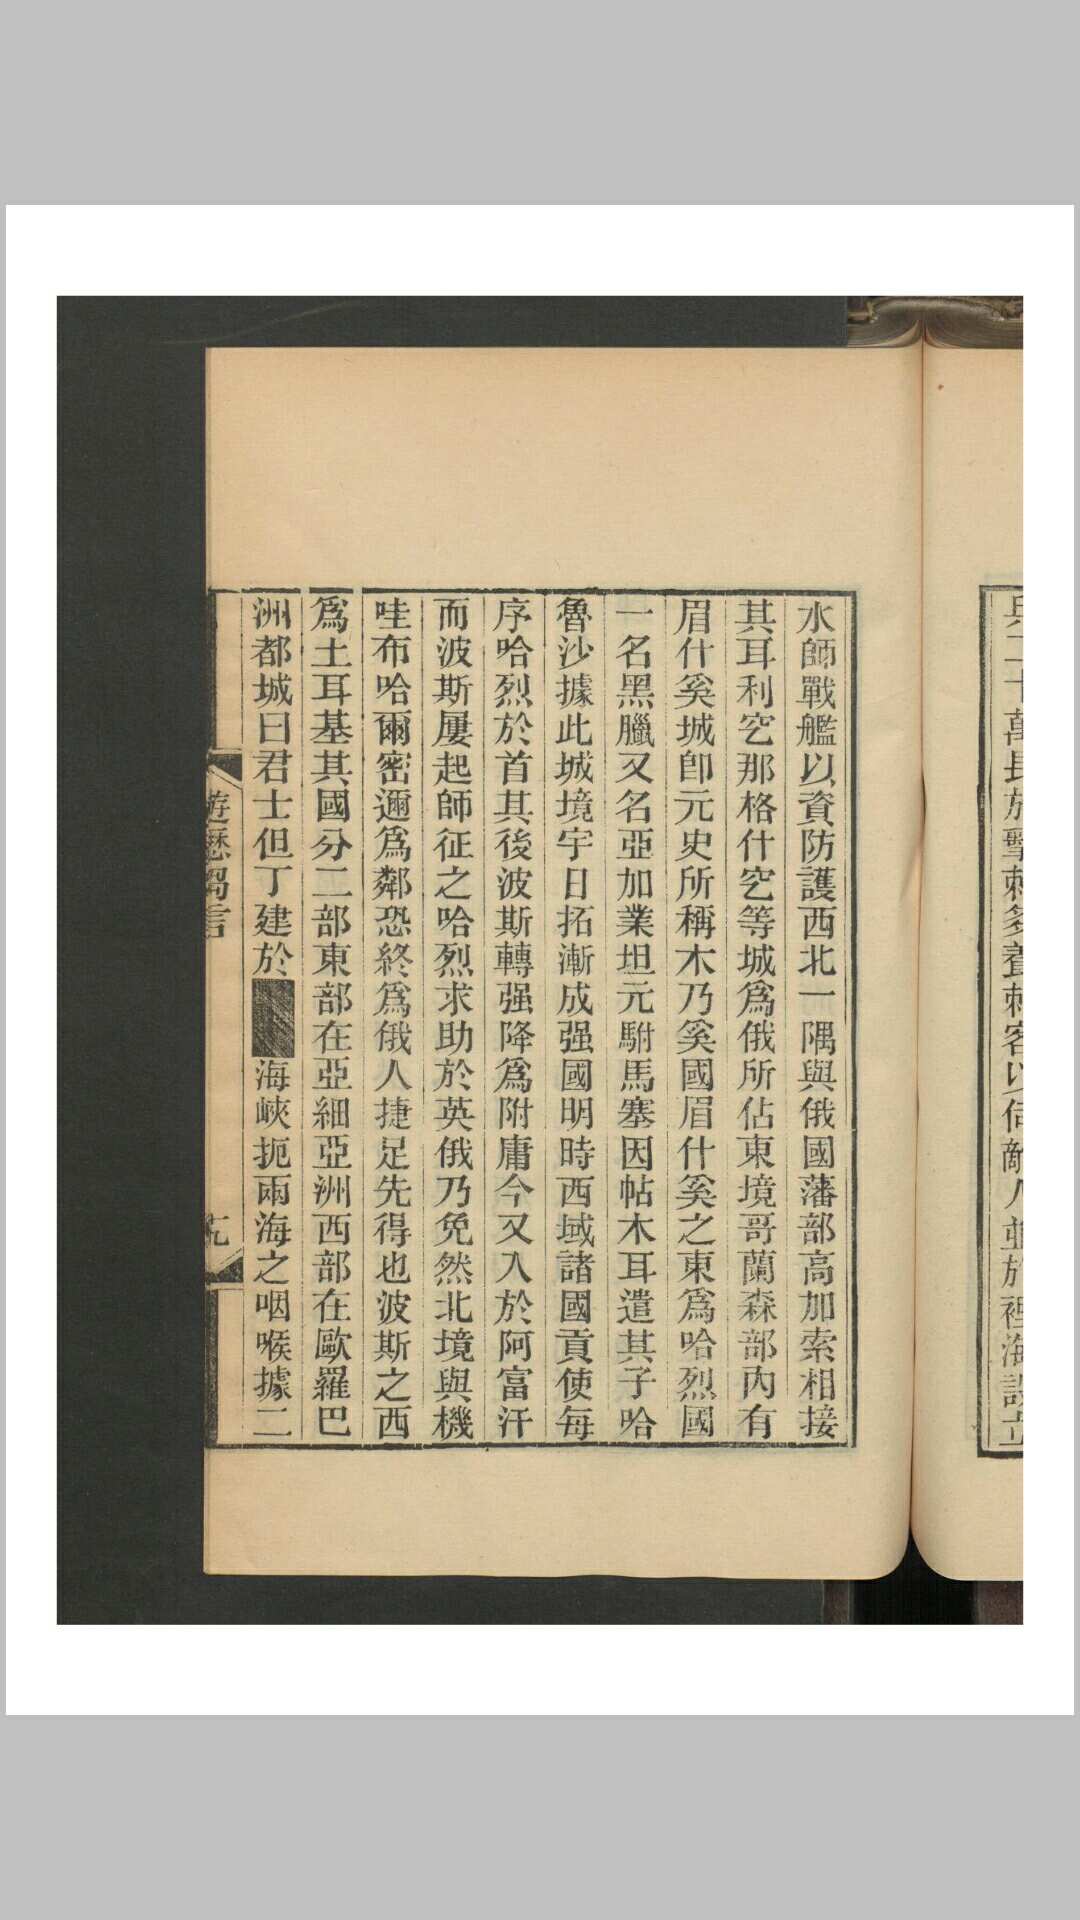 水師戰艦以資防護西北一隅與俄國藩部高加索相接
其耳利空那格什空等城爲俄所佔東境哥蘭森部內有
眉什奚城卽元史所稱木乃奚國眉什奚之東爲哈烈國
一名黑臘又名亞加業坦元駙馬塞因帖木耳遣其子哈
魯沙據此城境宇日拓漸成强國明時西域諸國貢使每
序哈烈於首其後波斯轉强降爲附庸今又入於阿富汗
而波斯屢起師征之哈烈求助於英俄乃免然北境與機
哇布哈爾密邇爲鄰恐終爲俄人捷足先得也波斯之西
爲土耳基其國分二部東部在亞細亞洲西部在歐羅巴
洲都城曰君士但丁建於海峽扼兩海之咽喉據二